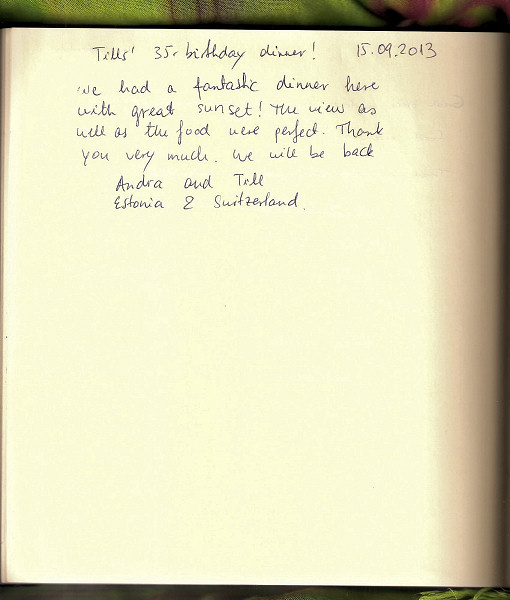 Tills' 35. birthday dinner! 15.09.2013
We had a fantastic dinner here
with great sunset! The view as
well as the food were perfect. Thank
you very much. We will be back
Andra and Till
Estonia & Switzerland.